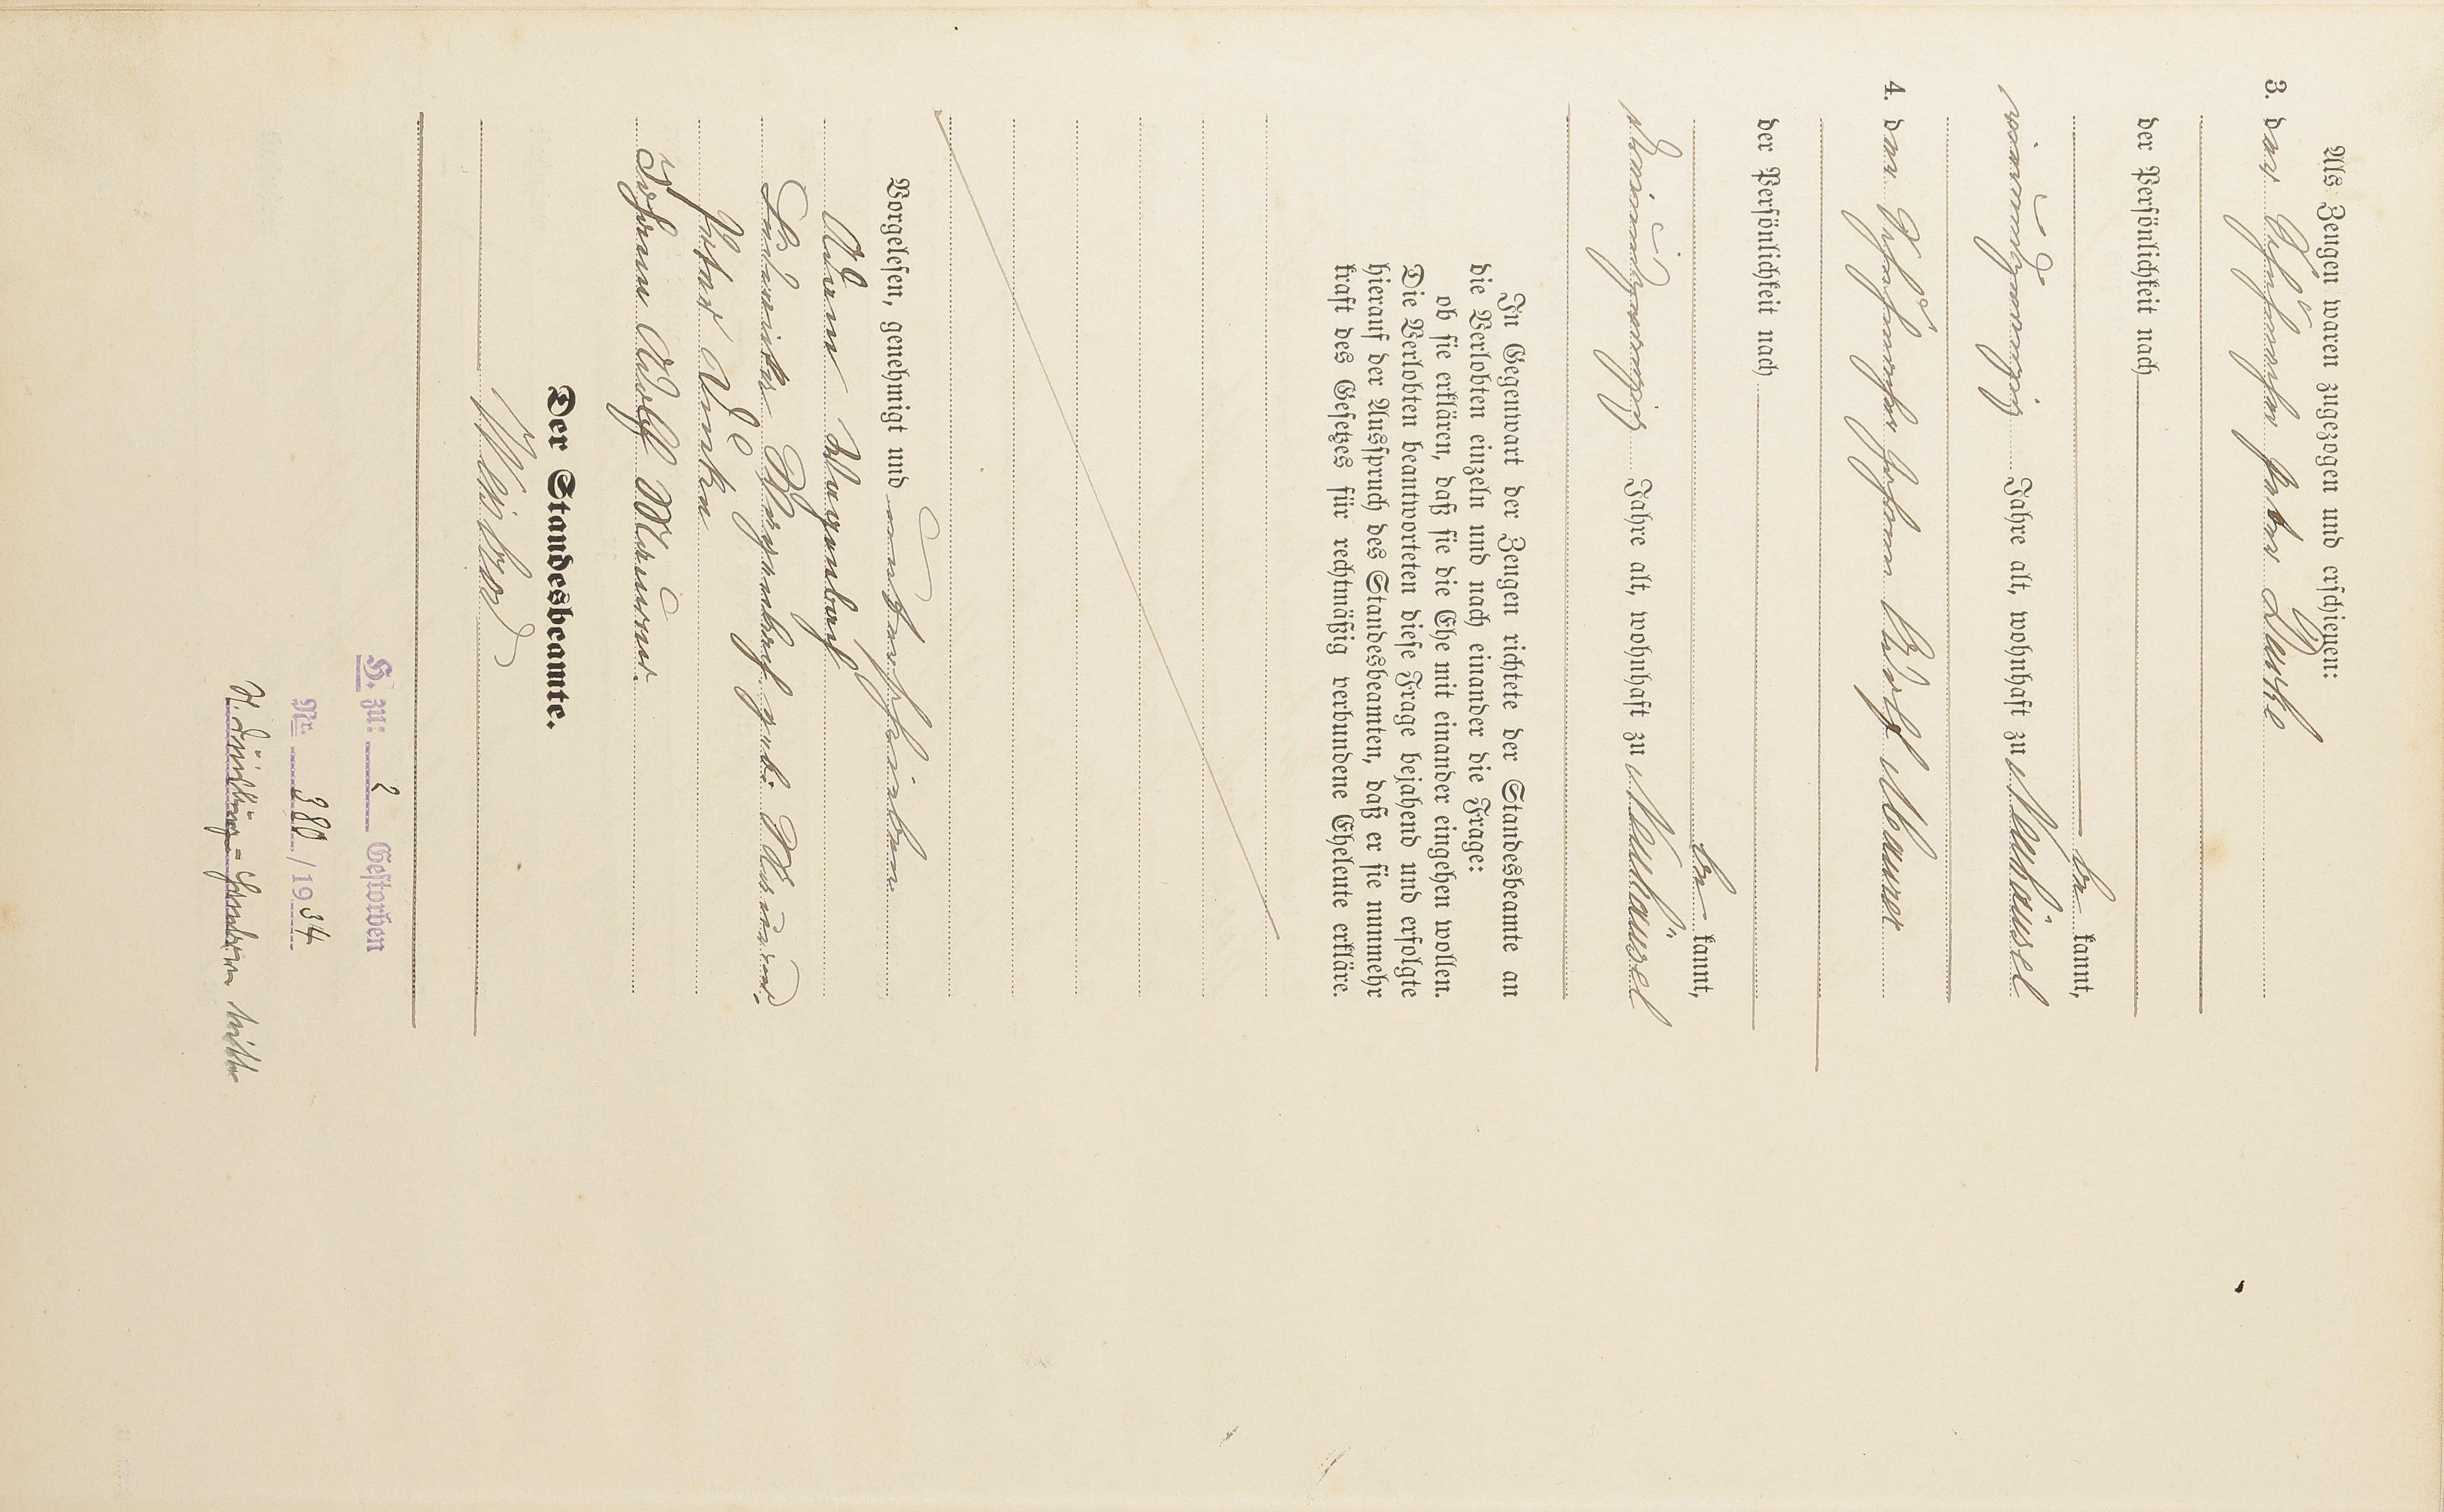 Als Zeugen waren zugezogen und erschienen:
3. der Schuhmacher Peter Zerke
der Persönlichkeit nach
be kannt,
einundzwanzig Jahre alt, wohnhaft zu Neuhäusel
4. der Schuhmacher Johann Adolf Maurer
der Persönlichkeit nach
be kannt,
Jahre alt, wohnhaft zu Neuhäusel
In Gegenwart der Zeugen richtete der Standesbeamte an
die Verlobten einzeln und nach einander die Frage:
ob sie erklären, daß sie die Ehe mit einander eingehen wollen.
Die Verlobten beantworteten diese Frage bejahend und erfolgte
hierauf der Ausspruch des Standesbeamten, daß er sie nunmehr
kraft des Gesetzes für rechtmäßig verbundene Eheleute erkläre.
Vorgelesen, genehmigt und unterschrieben
Adam Klagenbach
Klagenbach geb. Maurer.
Peter
Johann Adolf Maurer.
Der Standesbeamte.
H. zu: 2 Gestorben
Nr. 380 / 1934